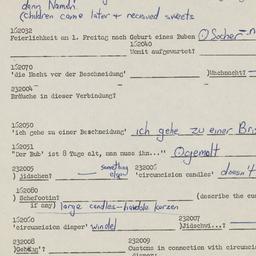 deny Namen
(children came later + received sweets
162032
Feierlichkeit am 1. Freitag nach Geburt eines Buben Socher-
162040
Womit aufgewartet?
162070
'die Nacht vor der Beschneidung' )Wachnacht?
232004
Bräuche in dieser Verbindung?
162050
'ich gehe zu einer Beschneidung' ich gehe zu einer Bris
162051
"Der Bub' ist 8 Tage alt, man muss ihn..." Ogemolt
232005 something 232006
)Jidschen? else 'circumcision candles' doesn't
162080
)Schefootin? (describe the cus
if any) large candles - handele kerzen
162060 232007
'circumcision diaper' windel )Jidschvi...?
232008 232009
? Customs in connection with circumci
diaper: